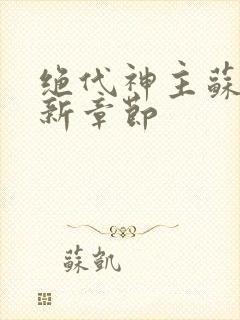 绝代神主蘇
新章節
蘇凱